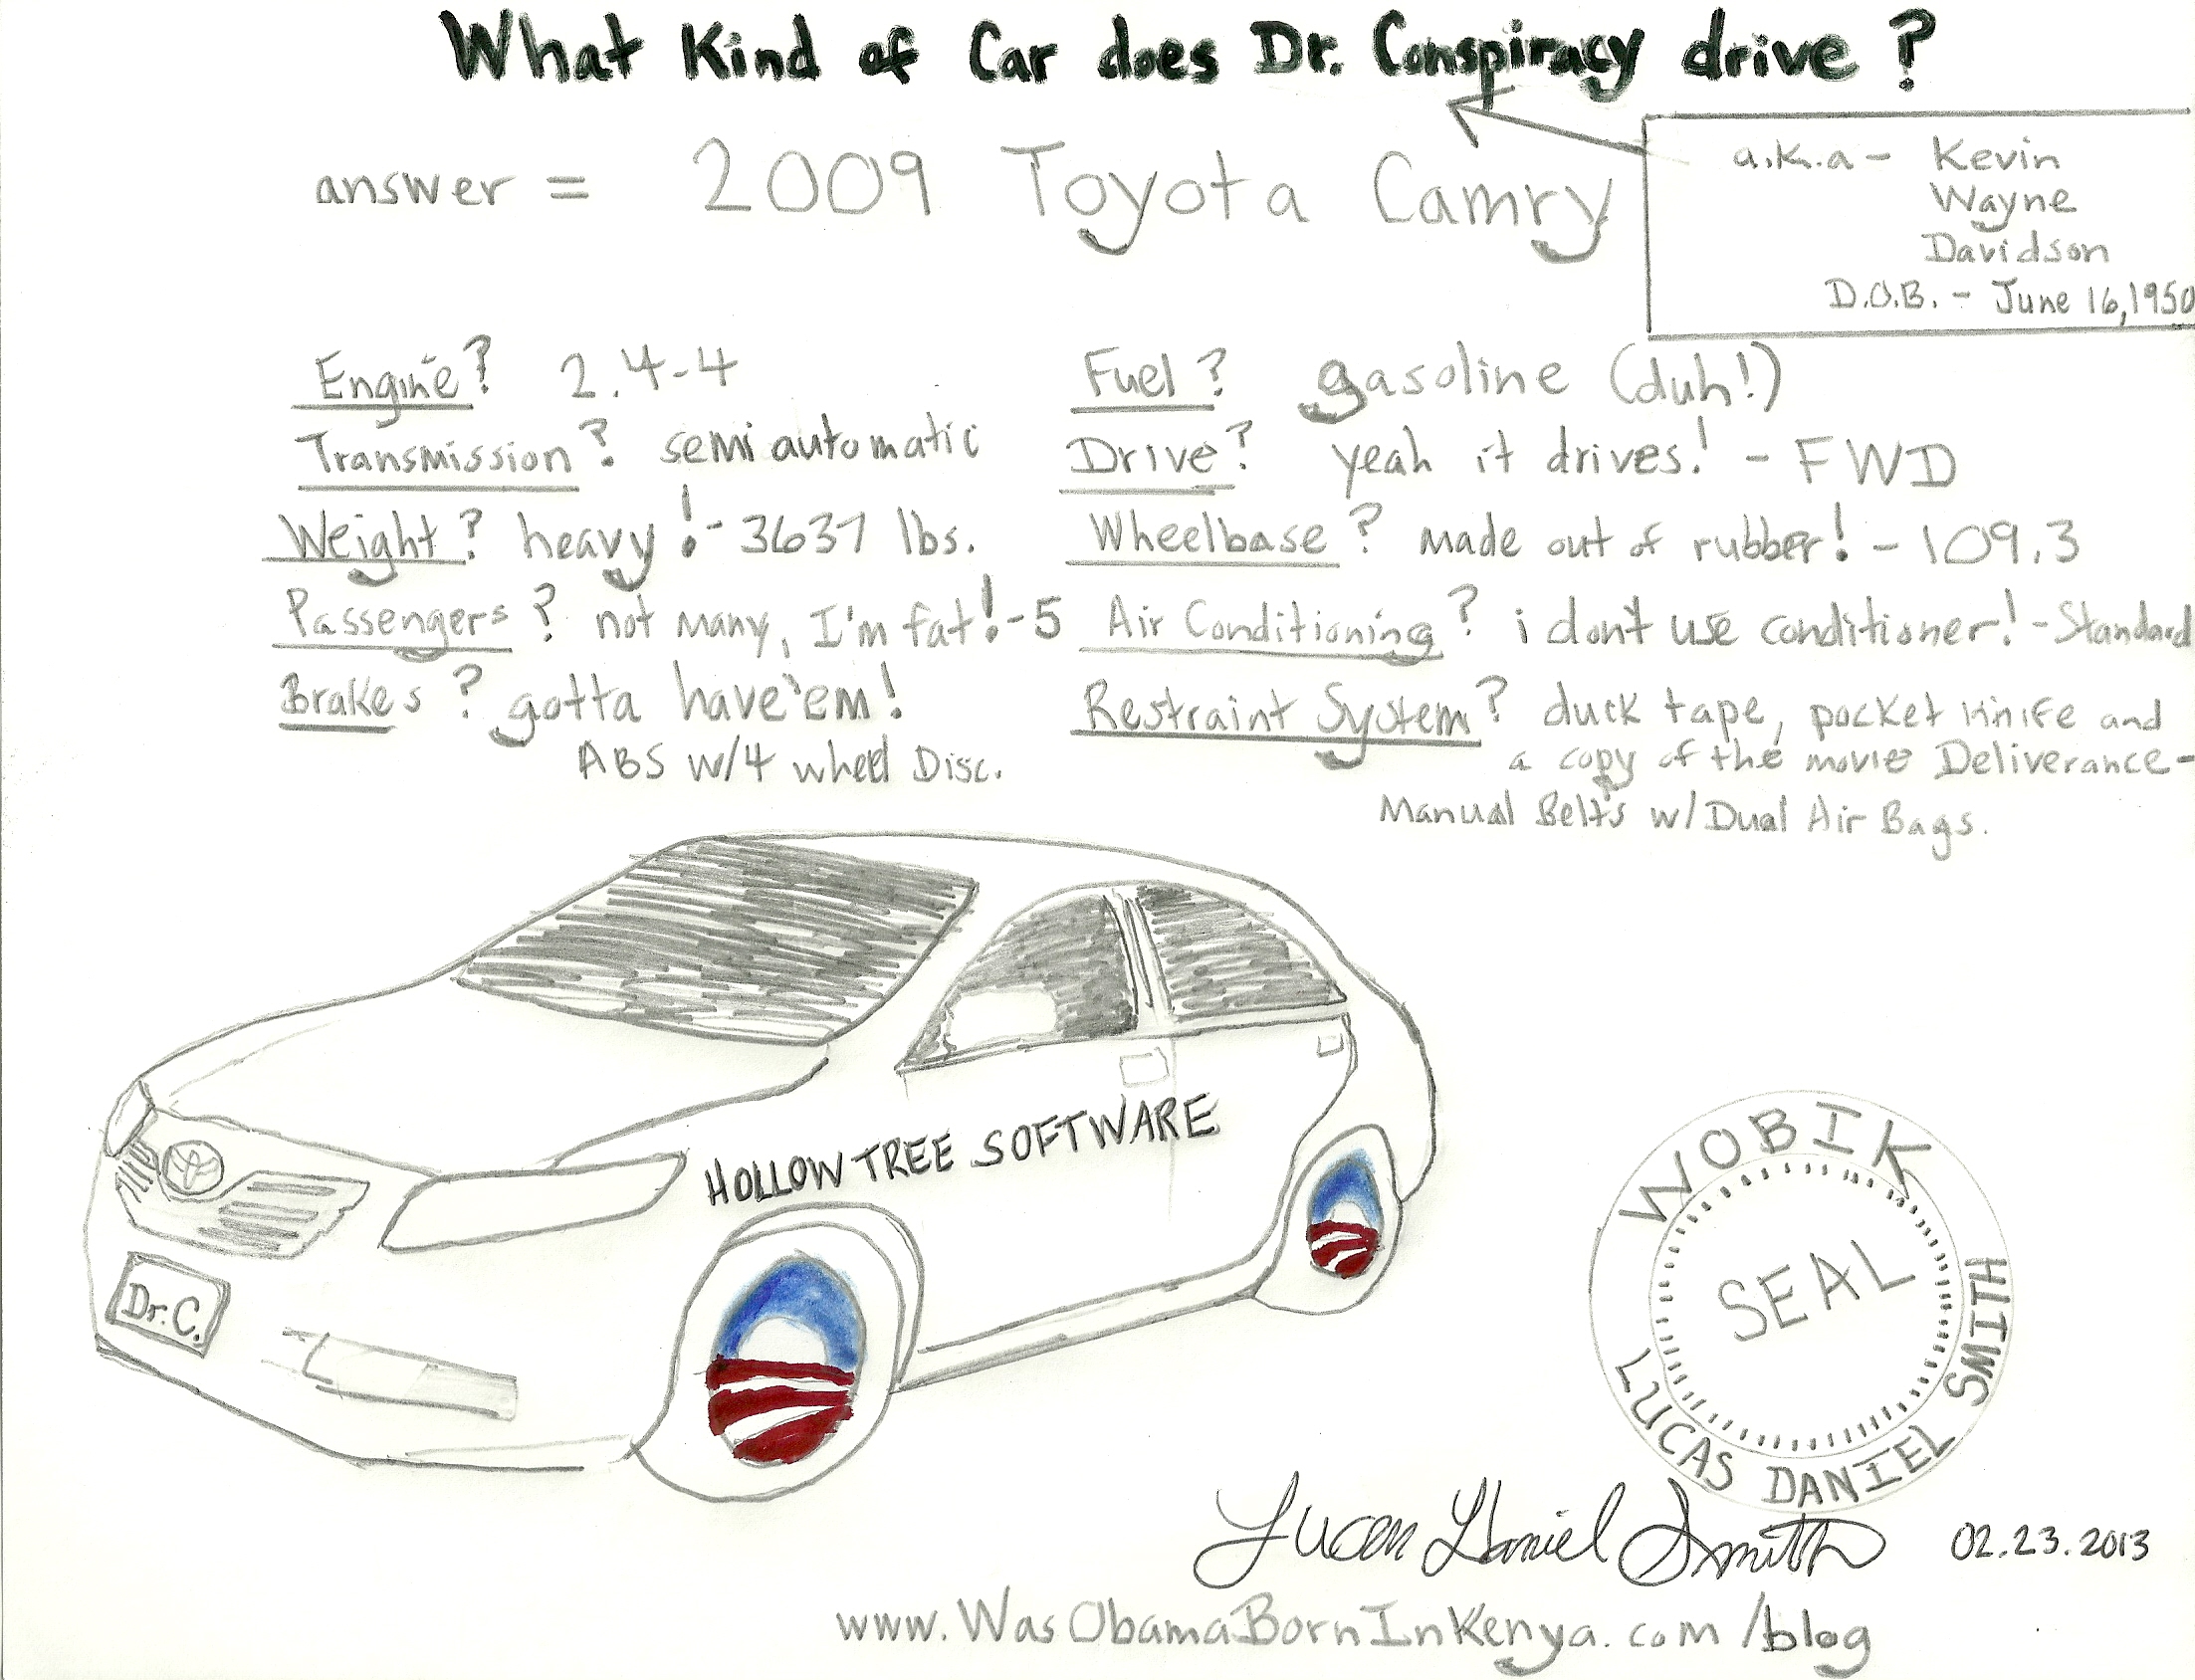 What Kind of Car does Dr. Conspiracy drive?
answer = 2009 Toyota Camry
a.k.a - Kevin
Wayne
Davidson
D.O.B. - June 16, 1950
Engine? 2.4-4
Fuel? gasoline (duh!)
Transmission? semi automatic
Drive? yeah it drives! - FWD
Weight? heavy! - 3637 lbs.
Wheelbase? made out of rubber! - 109.3
Passengers? not many, I'm fat! - 5
Air Conditioning? i don't use conditioner! - Standard
Brakes? gotta have 'em!
ABS w/4 wheel Disc.
Restraint System? duck tape, pocket knife and
a copy of the movie Deliverance -
Manual Belts w/ Dual Air Bags.
HOLLOW TREE SOFTWARE
Dr. C.
WOBIK
SEAL
LUCAS DANIEL SMITH
Lucas Daniel Smith 02.23.2013
www.WasObamaBornInKenya.com/blog